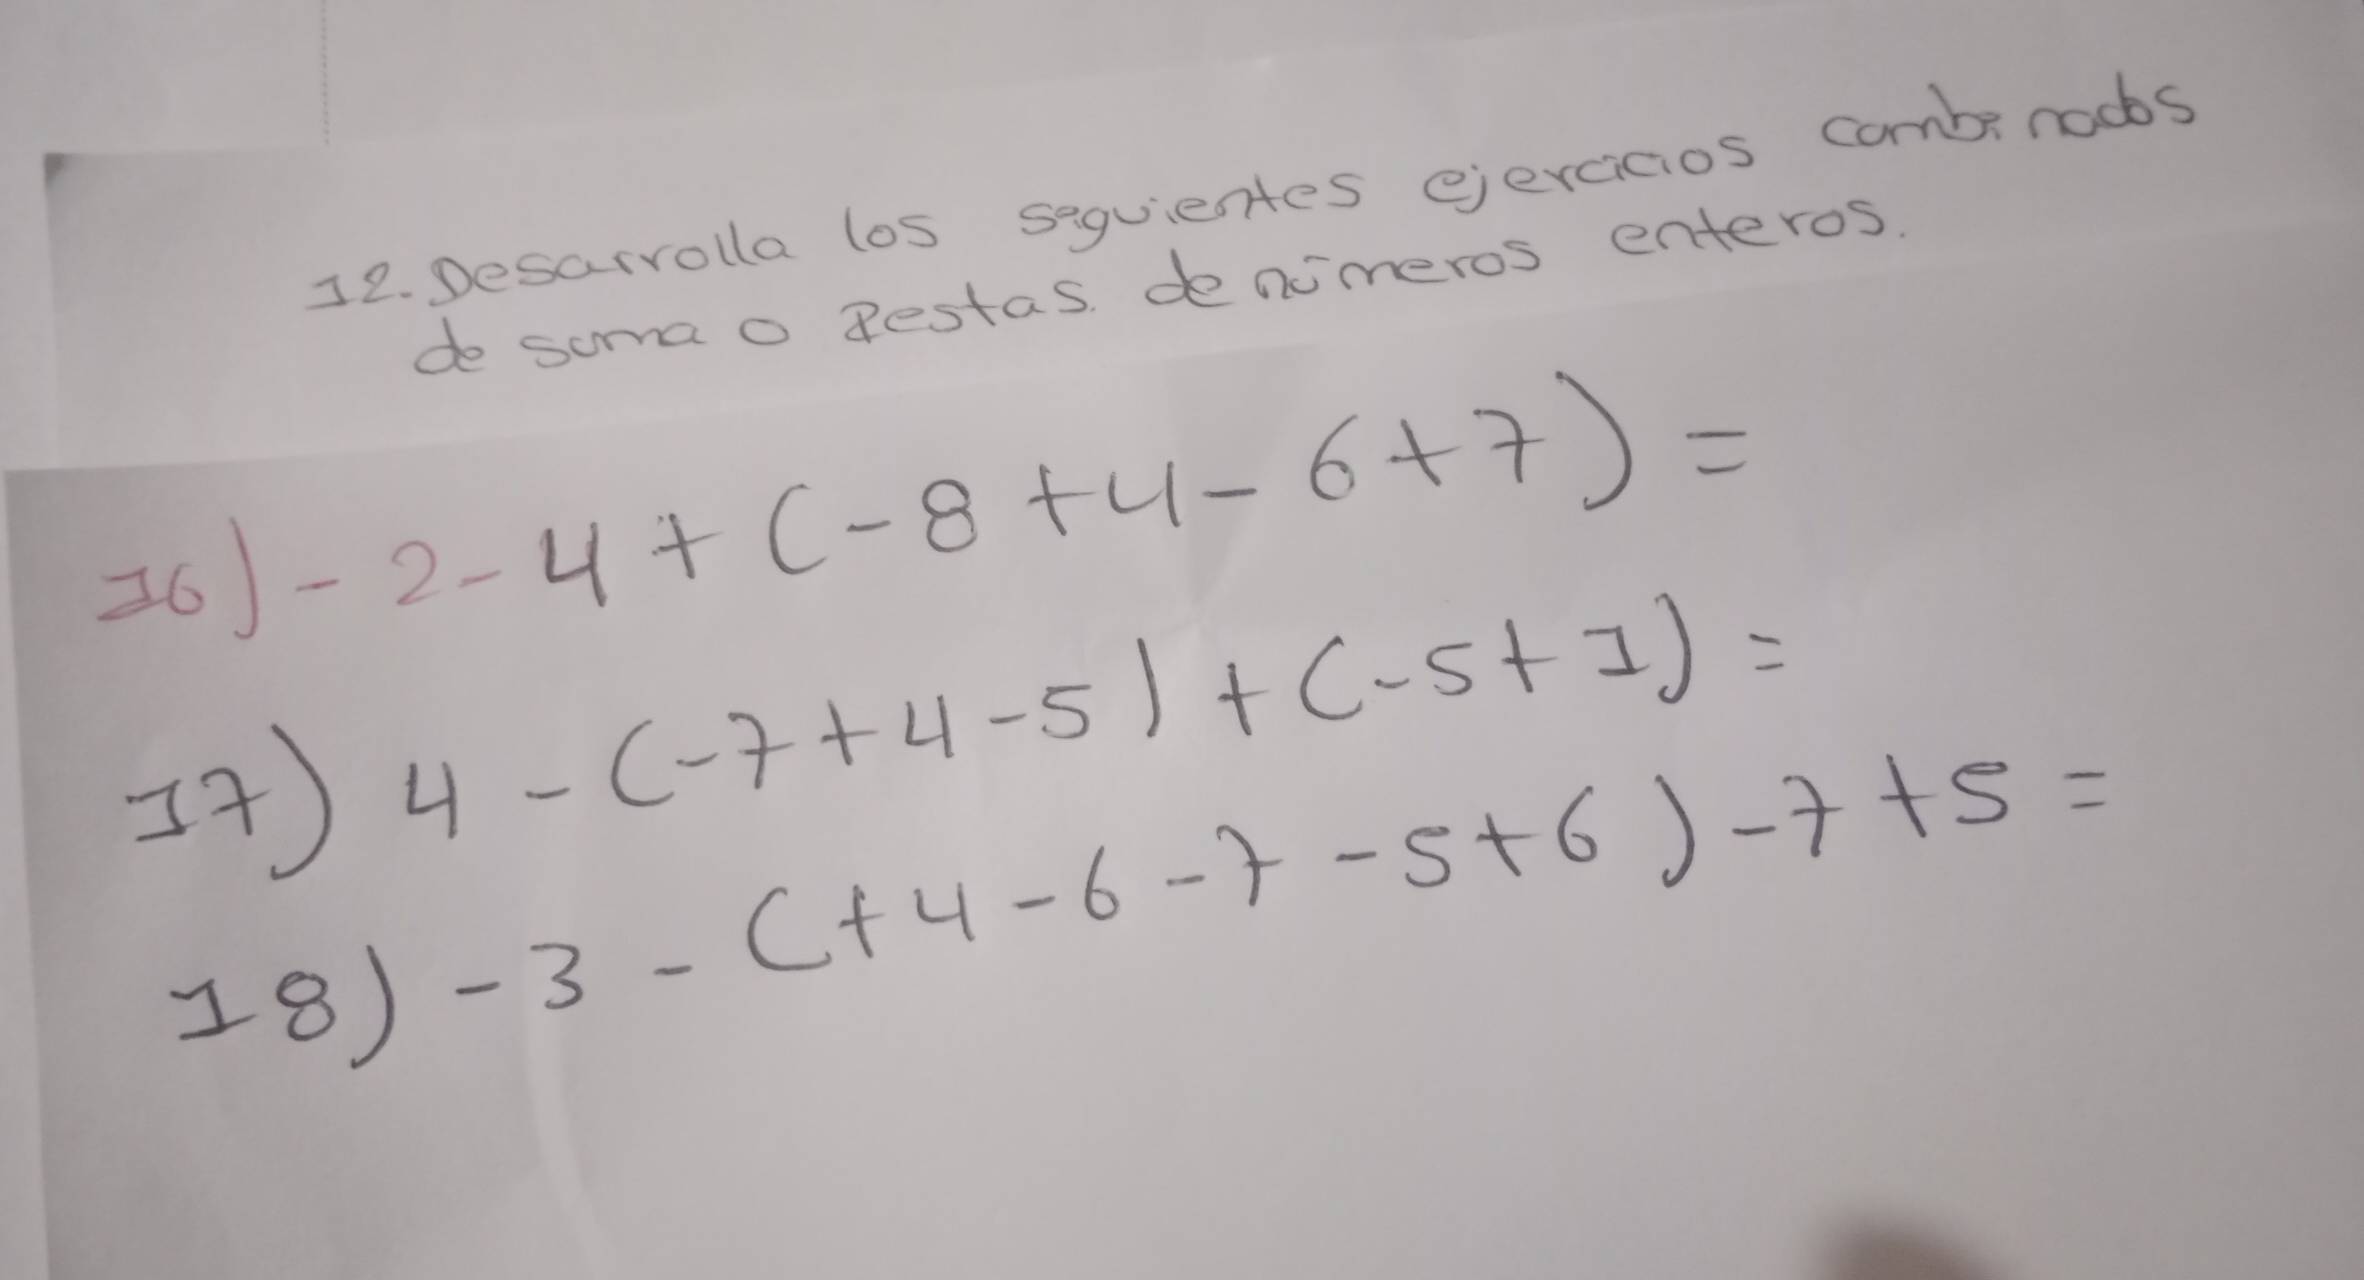 12. Desarrolla los siguientes ejercicios combinados
de suma o Restas. de números enteros.
16) - 2 - 4 + (- 8 + 4 - 6 + 7) =
17) 4 - (- 7 + 4 - 5) + (- 5 + 1) =
18) - 3 - (+ 4 - 6 - 7 - 5 + 6) - 7 + 5 =